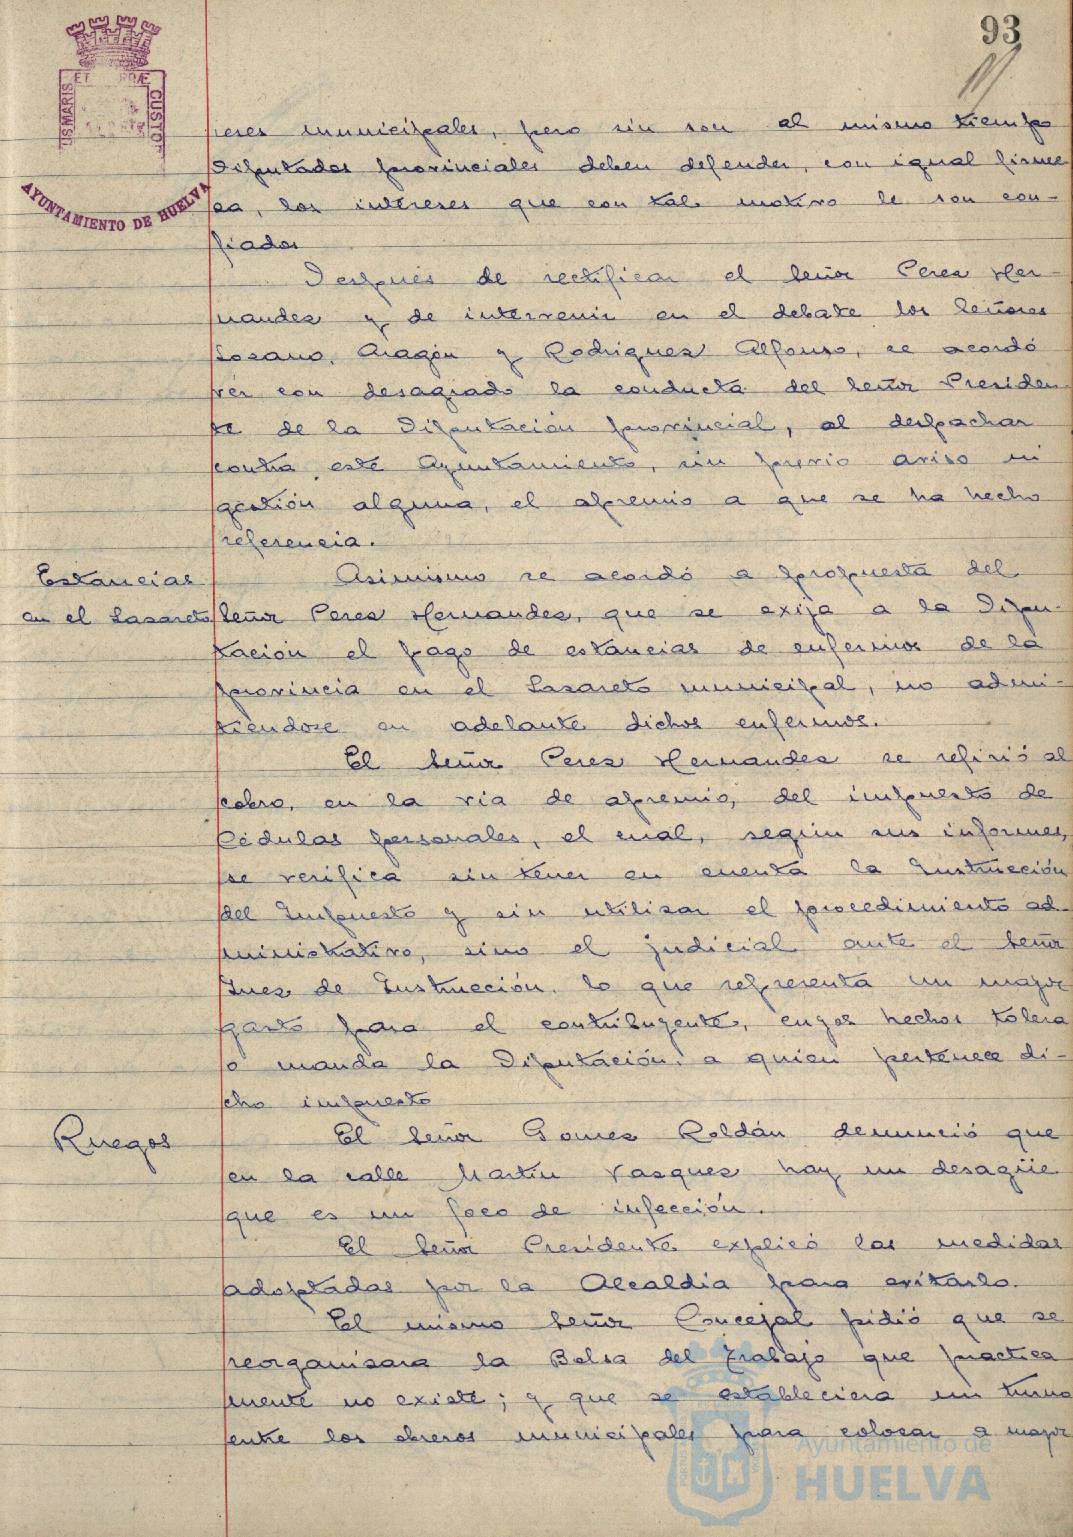 93
US MARIS ET TERRÆ CUSTOD
AYUNTAMIENTO DE HUELVA
reses municipales, pero sin son al mismo tiempo
Diputados provinciales deben defender, con igual firme
za, los intereses que con tal motivo le son con-
fiados
Después de rectificar el Señor Perez Her-
nandez y de intervenir en el debate los Señores
Lozano, Aragón y Rodriguez Alfonso, se acordó
vér con desagrado la conducta del Señor Presiden
te de la Diputación provincial, al despachar
contra este Ayuntamiento, sin previo aviso ni
gestión alguna, el apremio a que se ha hecho
referencia.
Estancias
en el Lazareto
Asimismo se acordó a propuesta del
Señor Perez Hernandez, que se exija a la Dipu-
tación el pago de estancias de enfermos de la
provincia en el Lazareto municipal, no admi-
tiendose en adelante dichos enfermos.
El Señor Perez Hernandez se refirió al
cobro, en la via de apremio, del impuesto de
Cédulas personales, el cual, según sus informes,
se verifica sin tener en cuenta la Instrucción
del Impuesto y sin utilizar el procedimiento ad-
ministrativo, sino el judicial ante el Señor
Juez de Instrucción, lo que representa un mayor
gasto para el contribuyente, cuyos hechos tolera
o manda la Diputación, a quien pertenece di-
cho impuesto
Ruegos
El Señor Gomez Roldán denunció que
en la calle Martin Vazquez hay un desagüe
que es un foco de infección.
El Señor Presidente explicó las medidas
adoptadas por la Alcaldia para evitarlo.
El mismo Señor Concejal pidió que se
reorganizara la Bolsa del Trabajo que practica
mente no existe; y que se estableciera un turno
entre los obreros municipales para colocar a mayor
Ayuntamiento de
HUELVA